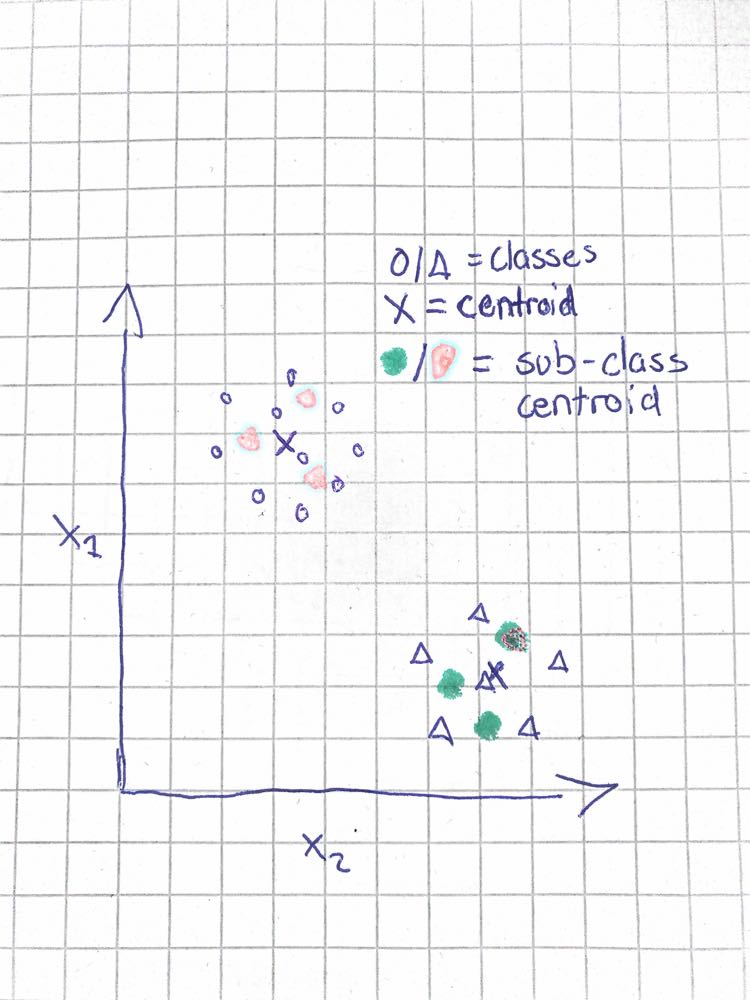 O/Δ = classes
X = centroid
/ = sub-class
centroid
X₁
X₂